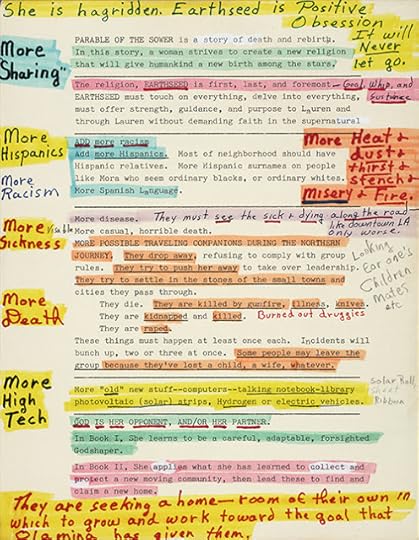 She is hagridden. Earthseed is Positive
Obsession
It will
Never
let go.
PARABLE OF THE SOWER is a story of death and rebirth.
In this story, a woman strives to create a new religion
that will give humankind a new birth among the stars.
More
"Sharing"
The religion, EARTHSEED is first, last, and foremost—Goal, Whip, and
EARTHSEED must touch on everything, delve into everything, Sustenance
must offer strength, guidance, and purpose to Lauren and
through Lauren without demanding faith in the supernatural
More
Hispanics
More
Racism
ADD more racism
Add more Hispanics. Most of neighborhood should have
Hispanic relatives. More Hispanic surnames on people
like Mora who seem ordinary blacks, or ordinary whites.
More Spanish Language.
More Heat &
dust &
thirst &
stench &
Misery & Fire
More
Sickness
More disease. They must see the sick & dying along the road
like downtown LA
only worse.
Visable More casual, horrible death.
MORE POSSIBLE TRAVELING COMPANIONS DURING THE NORTHERN
JOURNEY. They drop away, refusing to comply with group
rules. They try to push her away to take over leadership.
They try to settle in the stones of the small towns and
cities they pass through.
Looking
for one's
Children
mates
etc
More
Death
They die. They are killed by gunfire, illness, knives.
They are kidnapped and killed. Burned out druggies
They are raped.
These things must happen at least once each. Incidents will
bunch up, two or three at once. Some people may leave the
group because they've lost a child, a wife, whatever.
More
High
Tech
More "old" new stuff--computers--talking notebook-library
photovoltaic (solar) strips, Hydrogen or electric vehicles.
solar Roll,
Sheet
Ribbon
GOD IS HER OPPONENT, AND/OR HER PARTNER.
In Book I, She learns to be a careful, adaptable, forsighted
Godshaper.
In Book II, She applies what she has learned to collect and
protect a new moving community, then lead these to find and
claim a new home.
They are seeking a home—room of their own in
which to grow and work toward the goal that
Olamina has given them.